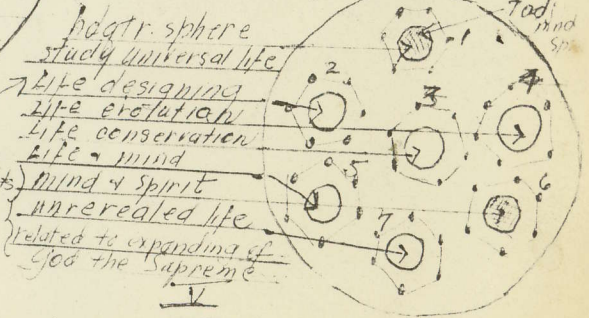 hdqtr. sphere
study universal life
Life designing
Life evolution
Life conservation
Life & mind
mind & spirit
unrevealed life
related to expanding of
God the Supreme
V
1
2
3
4
5
6
7